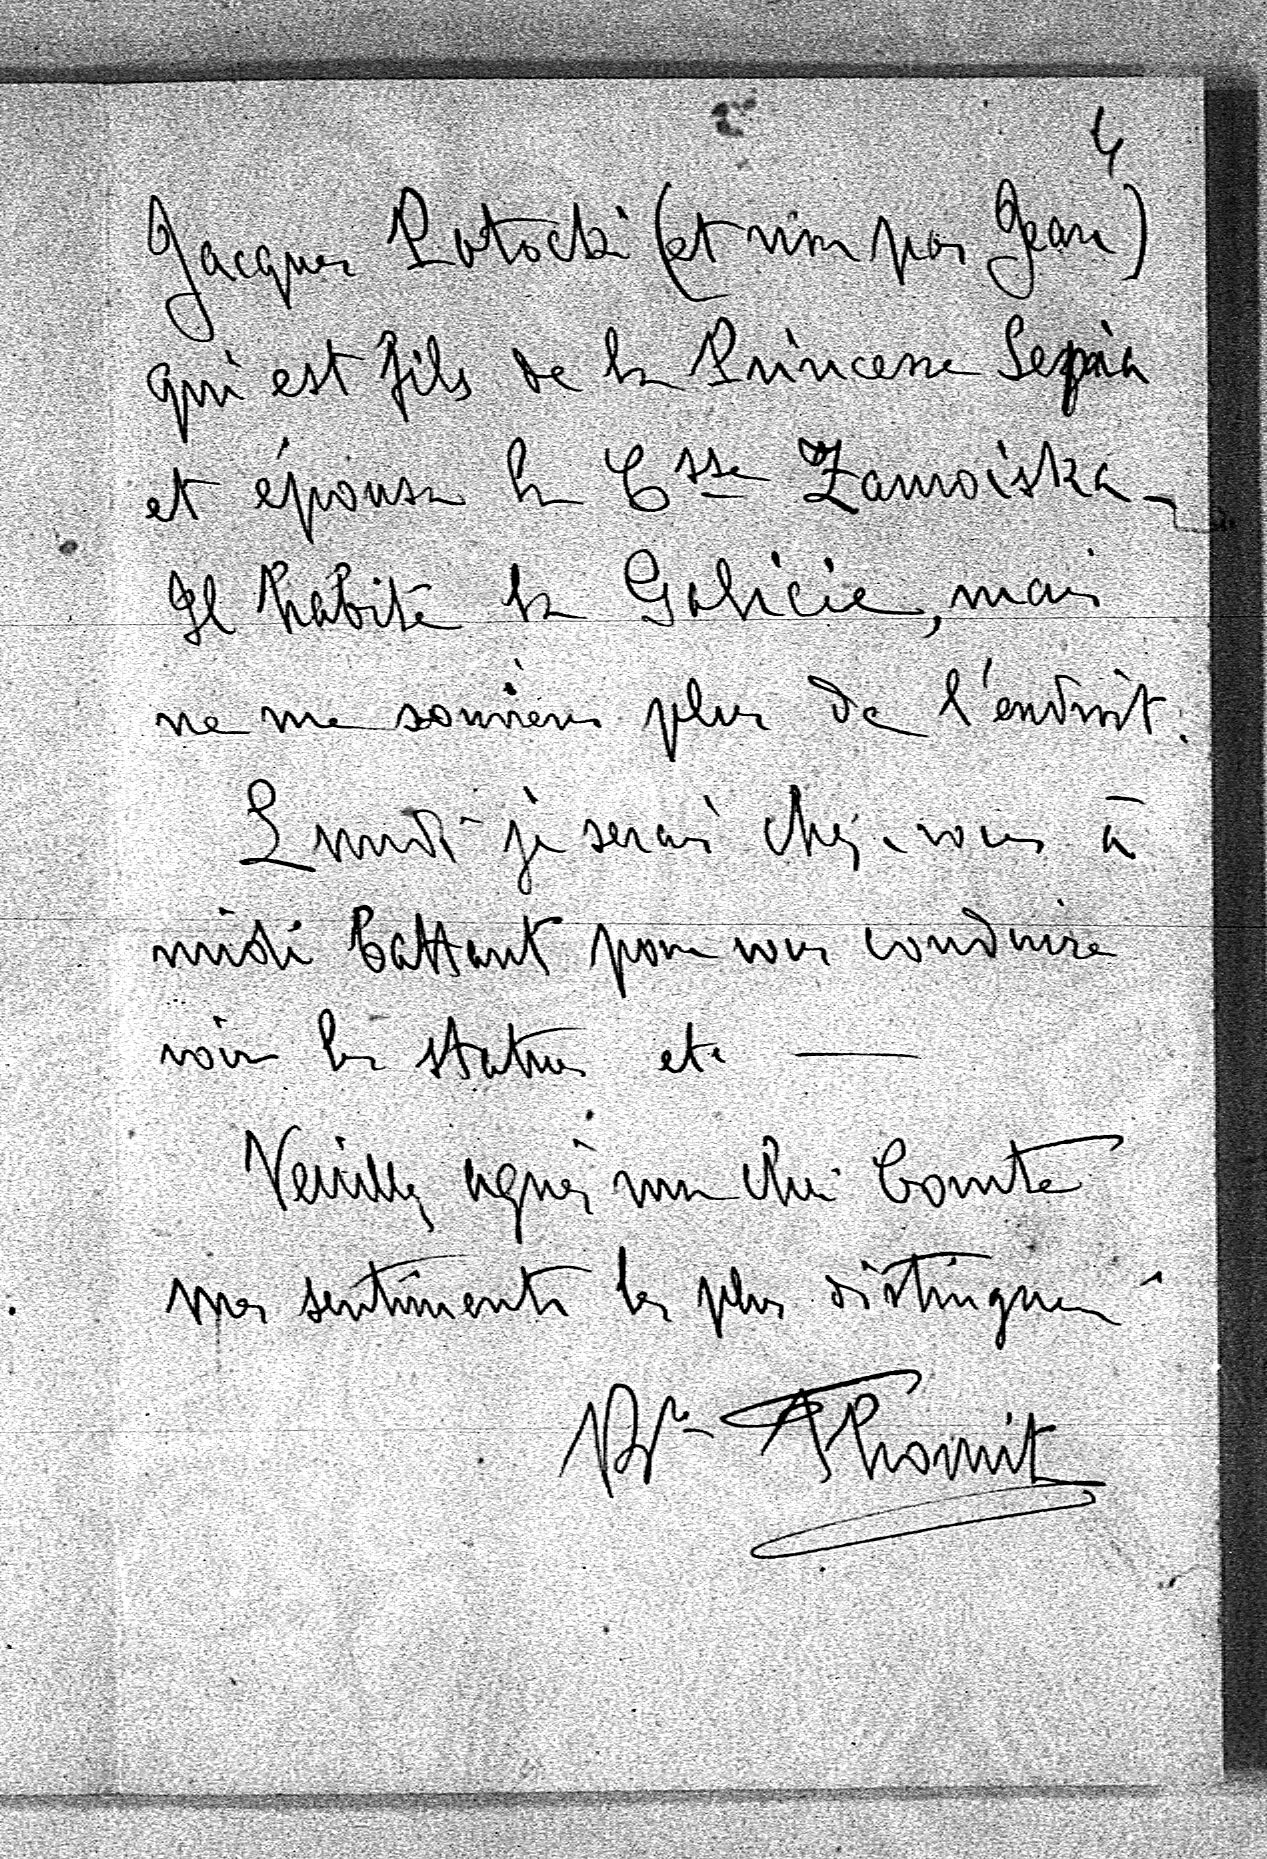 4
Jacques Potocki (et non pas Jean)
qui est fils de la Princesse
et épousa la Csse Zamoiska -
Il habite la Galicie, mais
ne me souviens plus de l'endroit.
Lundi je serai chez-vous à
midi battant pour vous conduire
voir les statues etc —
Veuillez agréer mon cher Comte
mes sentiments les plus distingués